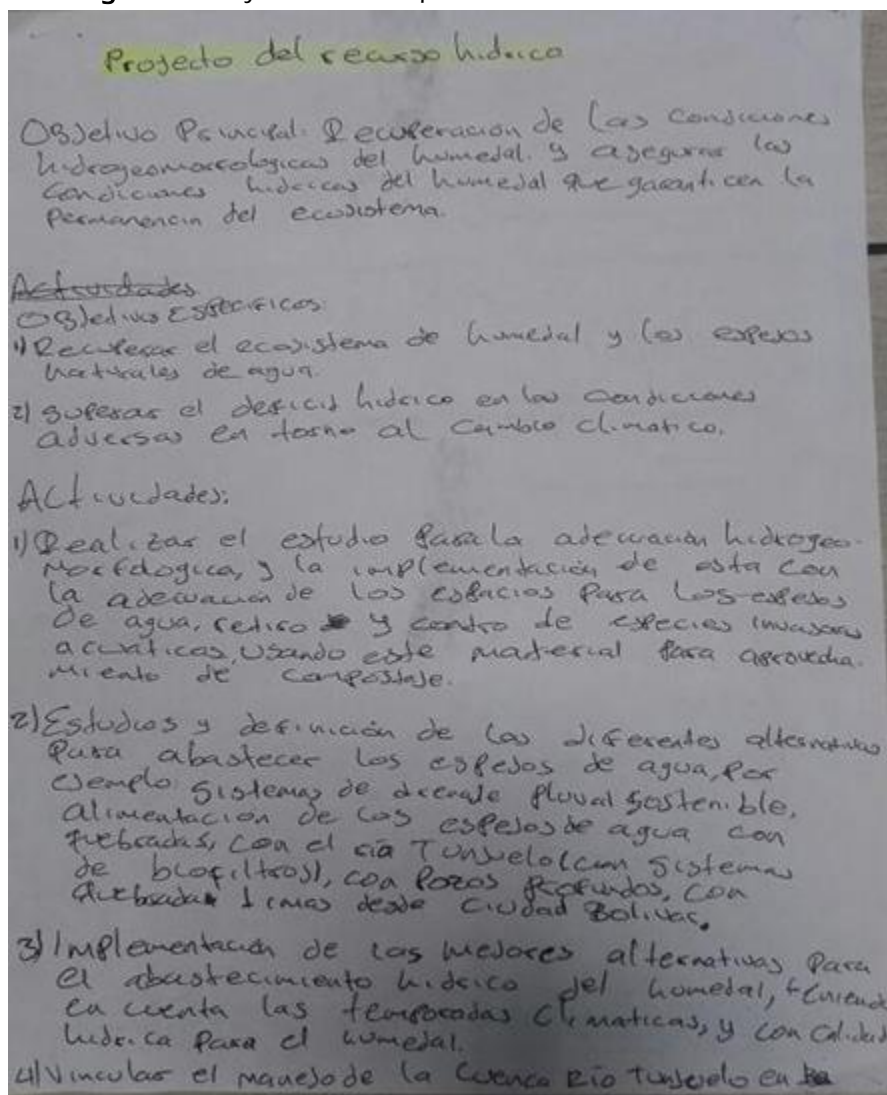 Projecto del recurso hidrico
Objetivo Principal: Recuperación de las condiciones
hidrogeomorfologicas del humedal. y asegurar las
condiciones hidricas del humedal que garanticen la
permanencia del ecosistema.
Actividades
Objetivos Especificos:
1) Recuperar el ecosistema de humedal y los espejos
naturales de agua.
2) superar el deficid hidrico en las condiciones
adversas en torno al cambio climatico.
Actividades:
1) Realizar el estudio para la adecuación hidrogeo-
morfologica, y la implementación de esta con
la adecuación de los espacios para los espejos
de agua, retiro y contro de especies invasoras
acuáticas, usando este material para aprovecha-
miento de compostaje.
2) Estudios y definición de las diferentes alternativas
para abastecer los espejos de agua, por
ejemplo sistemas de drenaje pluval sostenible,
alimentación de los espejos de agua con
quebradas, con el río Tunjuelo (con sistemas
de biofiltros), con pozos profundos, con
quebrada Limas desde Ciudad Bolivar.
3) Implementación de las mejores alternativas para
el abastecimiento hidrico del humedal, teniendo
en cuenta las temporadas climaticas, y con calidad
hidrica para el humedal.
4) Vincular el manejo de la cuenca Río Tunjuelo en